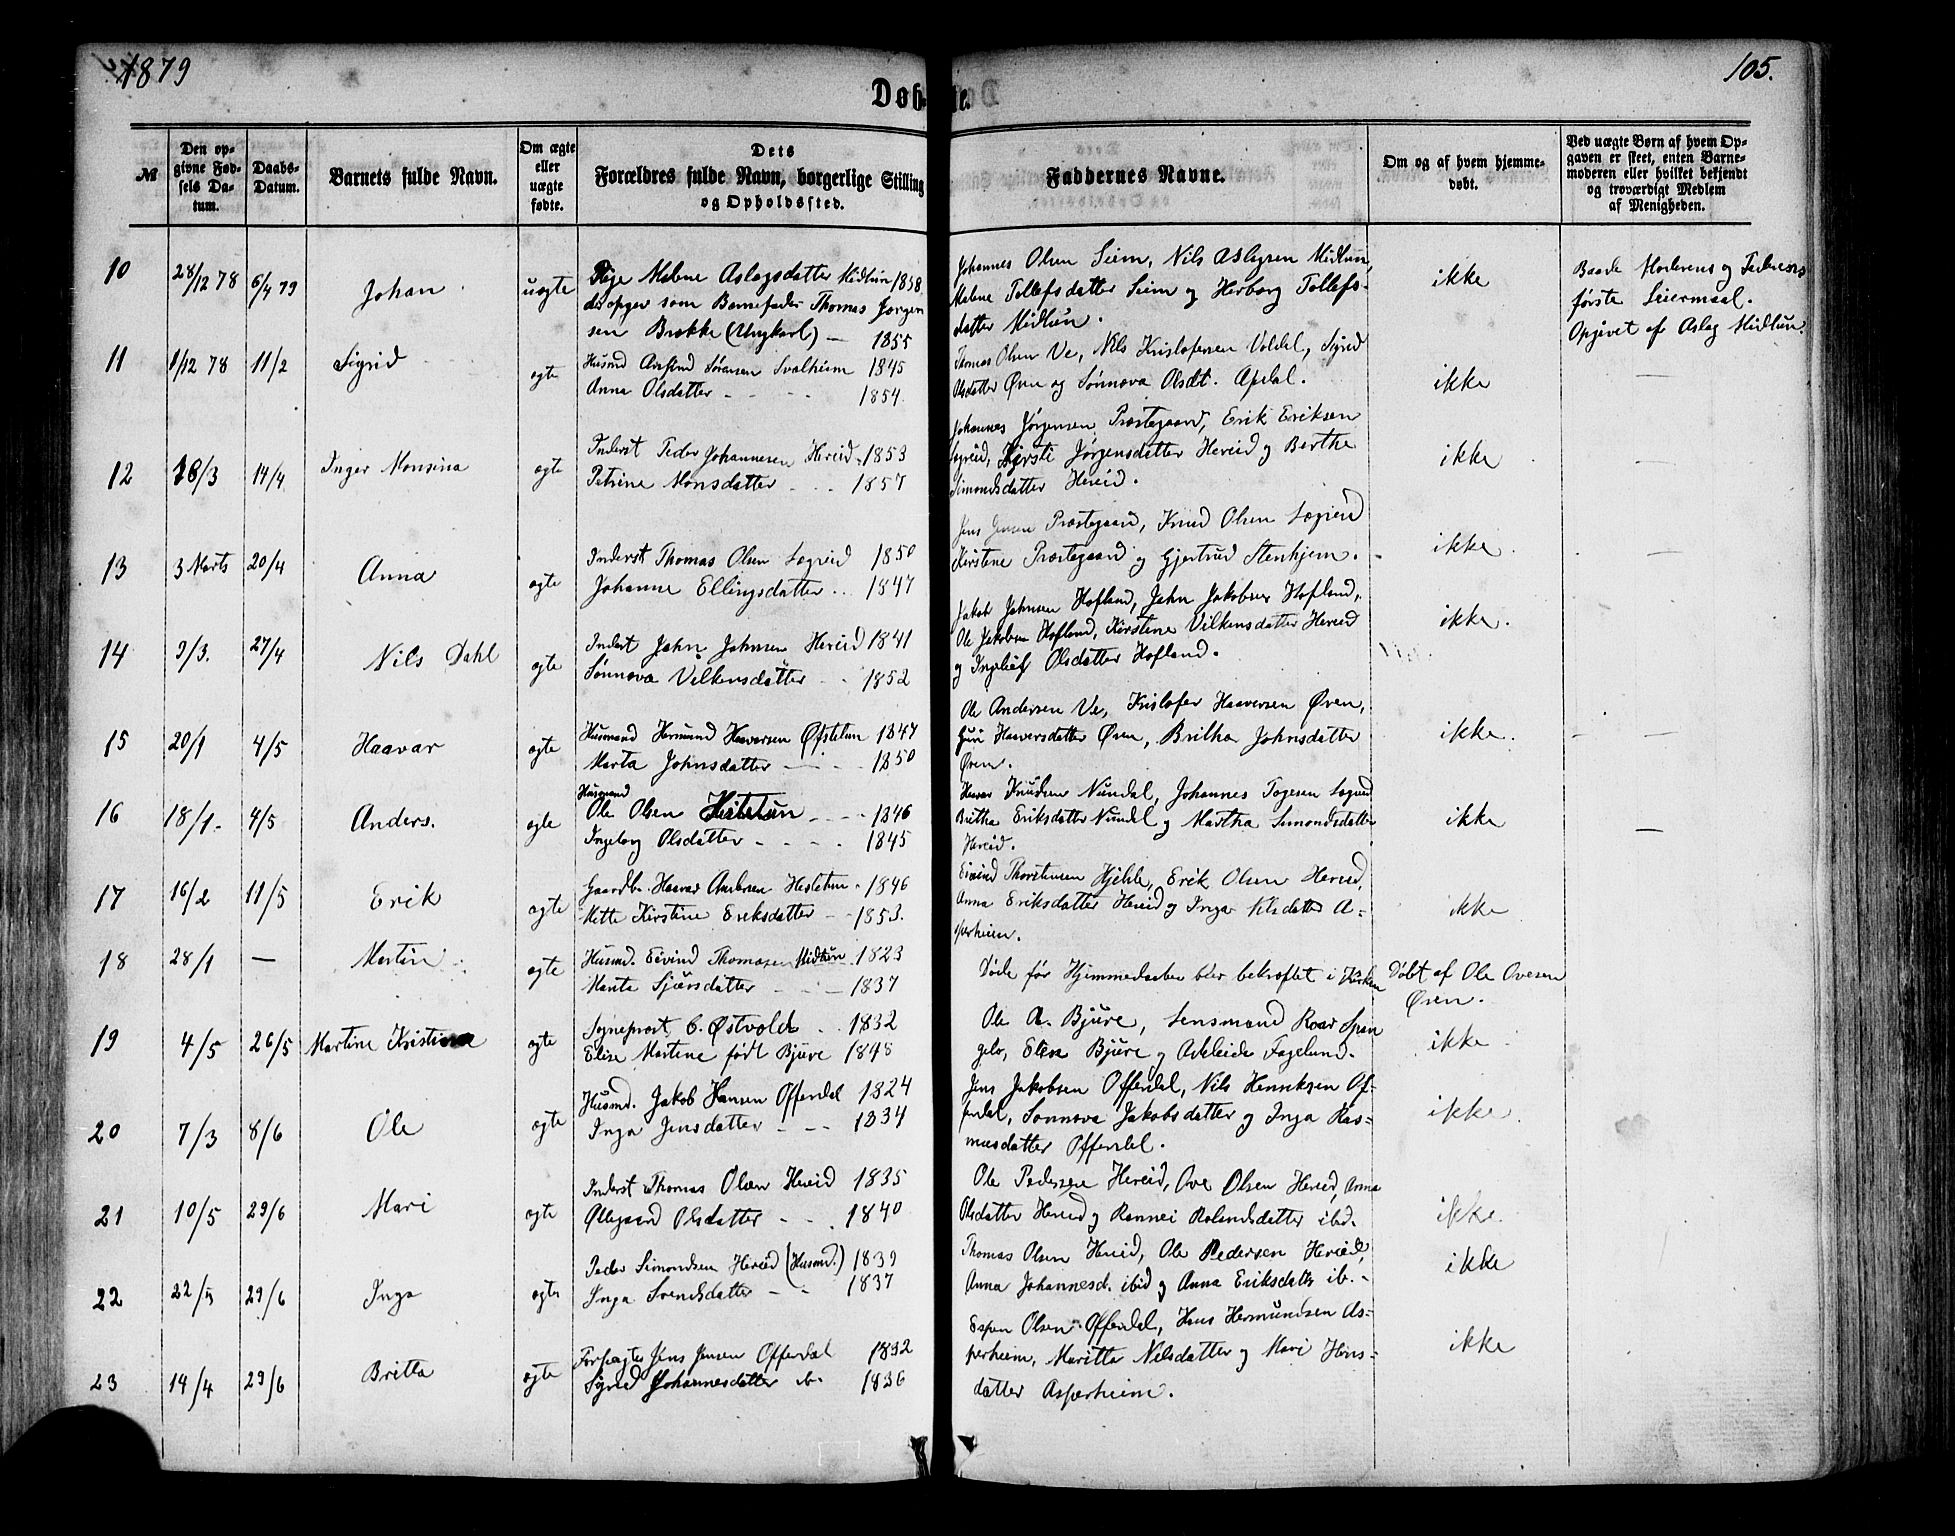 1879
105.
Døbte.
№
Den opgivne Fødsels Datum.
Daabs-Datum.
Barnets fulde Navn.
Om ægte eller uægte fødte.
Dets Forældres fulde Navn, borgerlige Stilling og Opholdssted.
Faddernes Navne.
Om og af hvem hjemmedøbt.
Ved uægte Børn af hvem Opgaven er skeet, enten Barnemoderen eller hvilket bekjendt og troværdigt Medlem af Menigheden.
10 28/12 78 6/4 79 Johan uægte
Pige Malene Aslagsdatter Midlun 1858
der opgir som Barnefader Thomas Jørgen
sen Brække (Ungkarl) — 1855
Johannes Olsen Seim, Nils Aslagsen Midlun,
Malene Tollefsdatter Seim og Herborg Tollefs-
datter Midlun.
ikke
Baade Moderens og Faderens
første Leiermaal.
Opgivet af Aslag Midlun.
11 1/12 78 11/2 Sigrid ægte
Husmd Sørensen Svalheim 1845
Anna Olsdatter - - - 1854.
Thomas Olsen Ve, Nils Kristofersen Voldal, Sigrid
Olsdatter Øren og Sønnova Olsdt. Apdal.
ikke —
12 18/3 14/4 Inger Monsina ægte
Inderst Peder Johannesen Hereid 1853
Petrine Monsdatter - - - 1857
Johannes Jørgensen Præstegaard, Erik Eriksen
Sogreid, Kirsti Jørgensdatter Hereid og Berthe
Simondsdatter Hereid.
ikke —
13 3 Marts 20/4 Anna ægte
Inderst Thomas Olsen Sogreid 1850
Johanne Ellingsdatter - - 1847
Jens Jensen Præstegaard, Knud Olsen Sogreid
Kirstene Præstegaard og Gjertrud Stenhjem.
ikke. —
14 9/3. 27/4 Nils Dahl ægte
Inderst John Johnsen Hereid 1841
Sønnova Vilkensdatter - - 1852
Jakob Johnsen Hofland, John Jakobsen Hofland,
Ole Jakobsen Hofland, Kirstene Vilkensdatter Hereid
og Ingeleif Olsdatter Hofland.
ikke.
15 20/1 4/5 Haavar ægte
Husmand Hermund Haavarsen Øfstetun 1847
Marta Johnsdatter - - - 1850
Ole Andersen Ve, Kristofer Haaversen Øren,
Guri Haaversdatter Øren, Britha Johnsdatter
Øren.
ikke. - —
16 18/1 - 4/5 Anders. ægte
Husmand
Ole Olsen Hestetun - - - 1846
Ingeborg Olsdatter - - - 1845
Haavar Knudsen Nundal, Johannes Togesen Sogreid
Britha Eriksdatter Nundal og Martha Simondsdatter
Hereid.
ikke —
17 16/2 11/5 Erik ægte
Gaardb. Haavar Andersen Hestetun - 1846
Mette Kirstine Eriksdatter - - 1853.
Eivind Thorstensen Hjelle, Erik Olsen Hereid,
Anna Eriksdatter Hereid og Inga Nilsdatter A-
sperheim.
ikke
18 28/1 — Martin ægte
Husmd. Eivind Thomasen Midtun. 1823
Marta Sjursdatter - - — 1837
Døde før Hjemmedaaben blev bekræftet i Kirken
Døbt af Ole Ovesen
Øren.
19 4/5 26/5 Martine Kristine ægte
Sogneprest C. Østvold - - 1832
Elise Martene født Bjure 1848
Ole A. Bjure, Lensmand Roar Span
gelo, Elen Bjure og Adeleide Fagelund.
ikke
20 7/3 8/6 Ole ægte
Husmd. Jakob Hansen Offerdal 1824
Inga Jensdatter - - - 1834
Jens Jakobsen Offerdal, Nils Henriksen Of-
ferdal, Sønnova Jakobsdatter og Inga Ras-
musdatter Offerdal.
ikke.
21 10/5 29/6 Mari ægte
Inderst Thomas Olsen Hereid 1835
Øllegaard Olsdatter - - - 1840
Ole Pedersen Hereid, Ove Olsen Hereid, Anna
Olsdatter Hereid og Rannei Rolandsdatter ibd.
ikke.
22 22/5 29/6 Inga ægte
Peder Simondsen Hereid (Husmd.) 1839
Inga Svendsdatter - - 1837
Thomas Olsen Hereid, Ole Pedersen Hereid,
Anna Johannesd. ibid og Anna Eriksdatter ib. -
ikke
23 14/4 29/6 Britta ægte
Forpagter Jens Jensen Offerdal 1832
Sigrid Johannesdatter ib. 1836
Espen Olsen Offerdal, Hans Hermundsen As-
perheim, Maritta Nilsdatter og Mari Hans-
datter Asperheim.
ikke